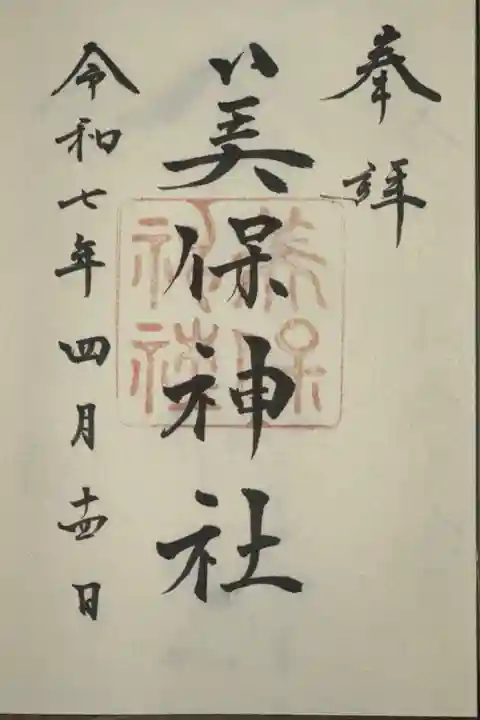 奉拝
美保神社
美保
神社
令和七年四月十四日